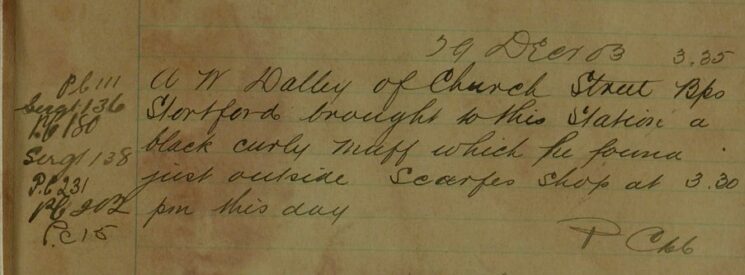 29 Decr 03 3.35
P.C 111
Sergt 136
P.C 180
Sergt 138
P.C 231
P.C 202
P.C 15
A W Dalley of Church Street Bps
Stortford brought to this Station a
black curly muff which he found
just outside Scarfes Shop at 3.30
pm this day